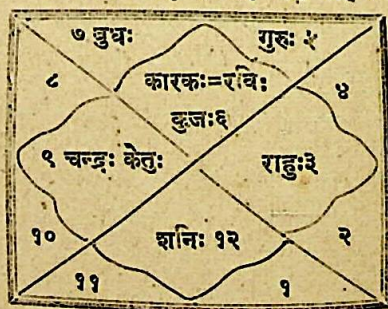 ७ बुधः गुरुः ५
८ कारकः=रविः ४
कुजः६
९ चन्द्रः केतुः राहुः३
१० शनिः १२ २
११ १